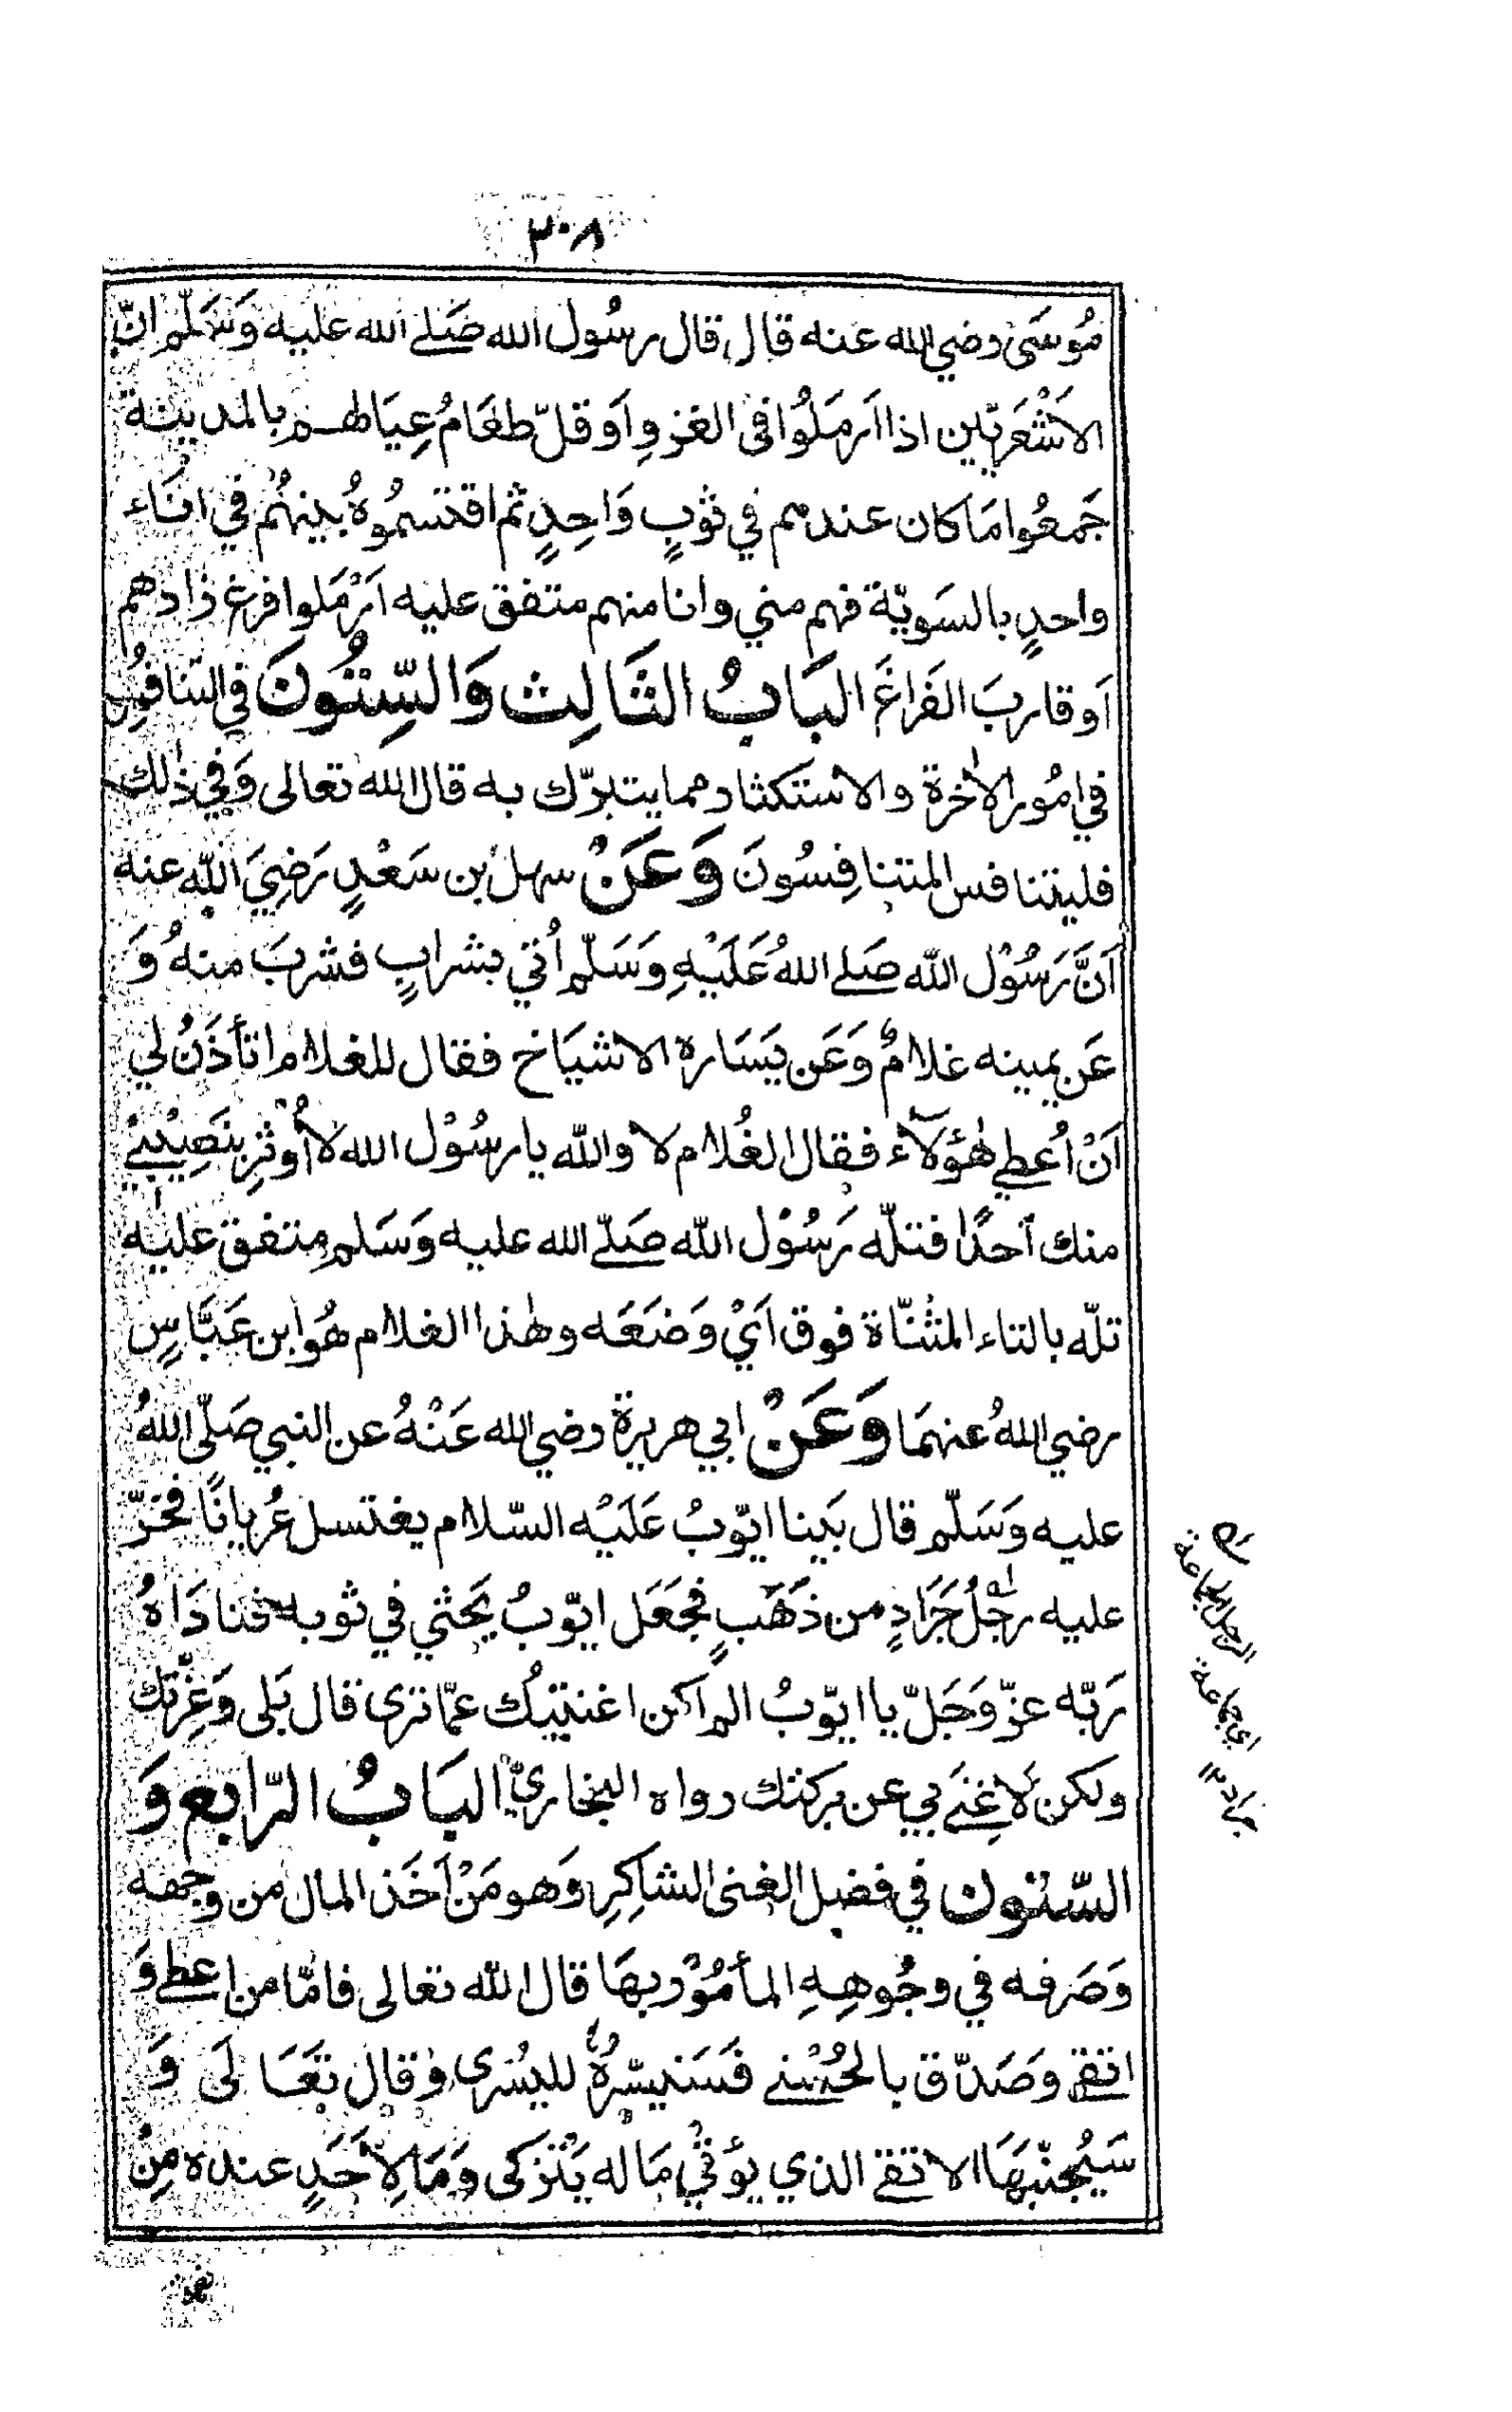 ٣٠٨
مُوسَى رضي الله عنه قال قال رسُول الله صَلى الله عليه وَسَلّم انّ
الاَشْعَريّين اذا اَرمَلُوا في الغزوِ اَوقلّ طعَامُ عِيَالهم بالمدينة
جَمعُوا مَا كان عندهم في ثوبٍ وَاحِدٍ ثم اقتسموُهُ بينهُم في انَاء
واحدٍ بالسَويّة فهم مني وانا منهم متفق عليه اَرْمَلوا فرغ زادهم
اَوقاربَ الفَراغَ البَابُ الثَالِث وَالسِّتُونَ في التنافُسِ
في امُور الاٰخرة والاسْتَكثار مما يتبرّك به قال الله تعالى وَفي ذٰلك
فليتنافس المتنافِسُونَ وَعَنْ سهل بن سَعْدٍ رَضِيَ اللّه عنه
اَنَّ رَسُوْل اللّه صَلى اللهُ عَلَيْهِ وَسَلّم اُتي بشرابٍ فشربَ منهُ وَ
عَن يمينه غلامٌ وَعَن يَسَاره الاشيَاخ فقال للغلام اتأذَنُ لي
اَنْ اُعطي هٰؤلآء فقال الغُلام لا واللّه يا رسُوْل الله لا اُوثِر بنَصِيْبي
منك اَحدًا فتلّه رَسُوْل اللّه صَلّى الله عليه وَسَلم متفق عليه
تلّه بالتاء المثنّاة فوق اَيْ وَضَعَه وهٰذا الغلام هُو ابن عَبَّاسٍ
رضي اللهُ عنهمَا وَعَنْ ابي هريرة رضي الله عَنْهُ عن النبي صَلّى اللهُ
عليه وَسَلّم قال بَينا ايّوبُ عَلَيْه السّلام يغتسل عُريانًا فخرّ
عليه رِجْلُ جَرَادٍ من ذَهَبٍ فجَعَل ايّوبُ يَحثي في ثوبه فنادَاهُ
رَبّه عزّ وَجَلّ يا ايّوبُ الم اكن اغنيتك عمّا ترى قال بَلى وَعِزّتك
ولكن لا غِنَى بي عن بركتك رواه البخاريّ البَابُ الرّابع وَ
السّتون في فضل الغنى الشاكِرِ وَهو مَنْ اَخَذ المال من وجهه
وَصَرفه في وجُوهِهِ المأمُوْر بهَا قال اللّه تعالى فامّا من اعطى وَ
اتقى وَصَدّق بالحُسْنى فَسَنيسّرهُ لليُسْرى وقال تعَالَى وَ
سَيُجنّبهَا الاتقى الذي يؤتي مَاله يَتزكى وَمَا لِاَحَدٍ عنده مِنْ
الرجل الجماعة
اي جماعة
جراد